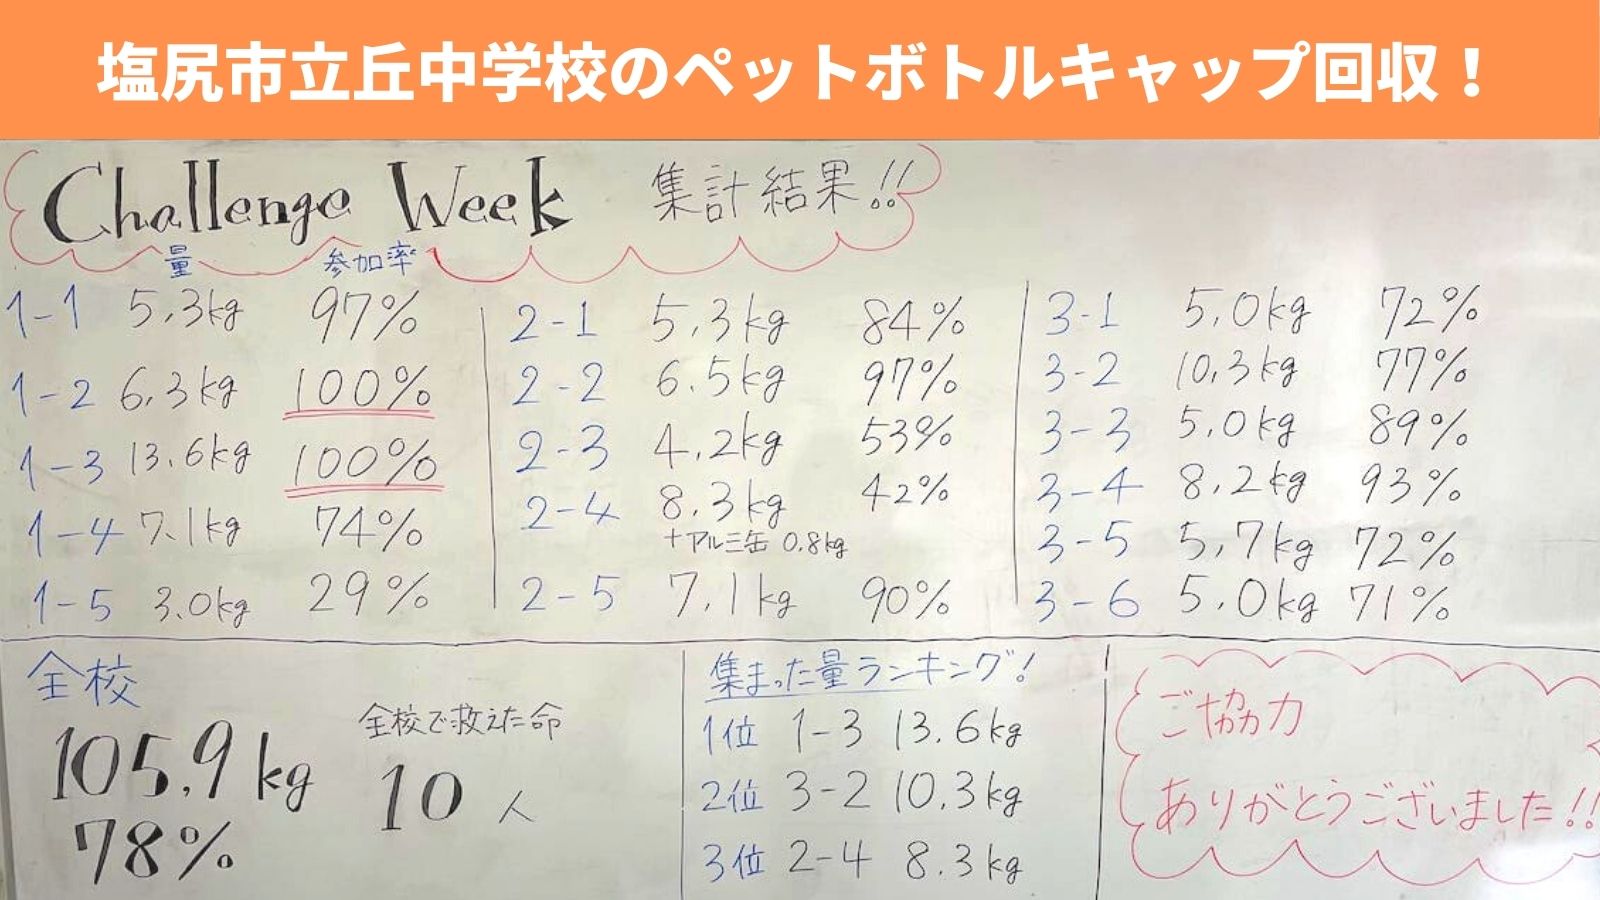 塩尻市立丘中学校のペットボトルキャップ回収！
Challenge Week 集計結果!!
量 参加率
1-1 5.3kg 97%
1-2 6.3kg 100%
1-3 13.6kg 100%
1-4 7.1kg 74%
1-5 3.0kg 29%
2-1 5.3kg 84%
2-2 6.5kg 97%
2-3 4.2kg 53%
2-4 8.3kg 42%
+アルミ缶 0.8kg
2-5 7.1kg 90%
3-1 5.0kg 72%
3-2 10.3kg 77%
3-3 5.0kg 89%
3-4 8.2kg 93%
3-5 5.7kg 72%
3-6 5.0kg 71%
全校
105.9kg
78%
全校で救えた命
10人
集まった量ランキング!
1位 1-3 13.6kg
2位 3-2 10.3kg
3位 2-4 8.3kg
ご協力
ありがとうございました!!